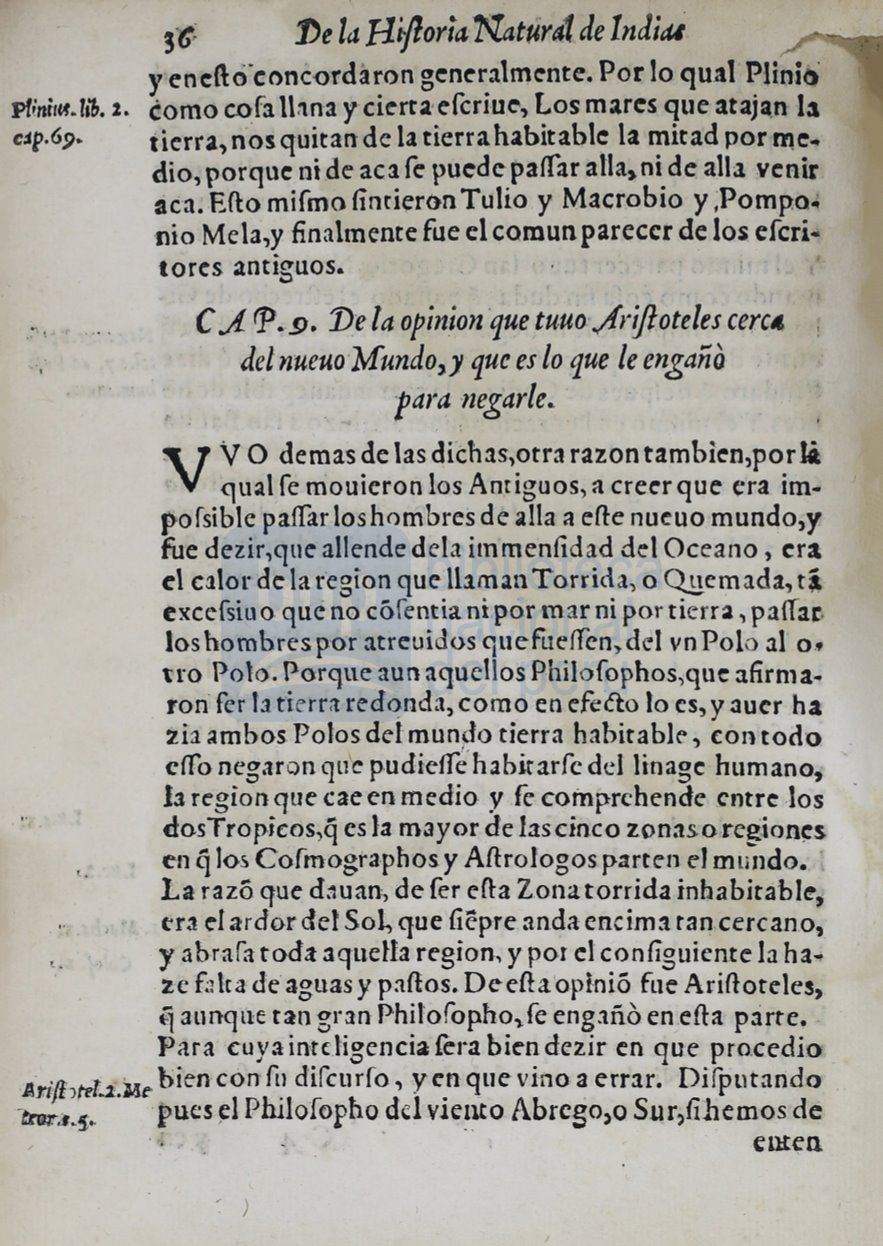 36 De la Hiſtoria Natural de Indias
y eneſto concordaron generalmente. Por lo qual Plinio
Plinius. lib. 2.
cap. 69.
como coſa llana y cierta eſcriue, Los mares que atajan la
tierra, nos quitan de la tierra habitable la mitad por me-
dio, porque ni de aca ſe puede paſſar alla, ni de alla venir
aca. Eſto miſmo ſintieron Tulio y Macrobio y Pompo-
nio Mela, y finalmente fue el comun parecer de los eſcri-
tores antiguos.
CAP. 9. De la opinion que tuuo Ariſtoteles cerca
del nueuo Mundo, y que es lo que le engañò
para negarle.
VVO demas de las dichas, otra razon tambien, por la
qual ſe mouieron los Antiguos, a creer que era im-
poſsible paſſar los hombres de alla a eſte nueuo mundo, y
fue dezir, que allende dela immenſidad del Oceano, era
el calor de la region que llaman Torrida, o Quemada, tã
exceſsiuo que no cõſentia ni por mar ni por tierra, paſſar
los hombres por atreuidos que fueſſen, del vn Polo al o-
tro Polo. Porque aun aquellos Philoſophos, que afirma-
ron ſer la tierra redonda, como en efecto lo es, y auer ha
zia ambos Polos del mundo tierra habitable, con todo
eſſo negaron que pudieſſe habitarſe del linage humano,
la region que cae en medio y ſe comprehende entre los
dos Tropicos, q̃ es la mayor de las cinco zonas o regiones
en q̃ los Coſmographos y Aſtrologos parten el mundo.
La razõ que dauan, de ſer eſta Zona torrida inhabitable,
era el ardor del Sol, que ſiẽpre anda encima tan cercano,
y abraſa toda aquella region, y por el conſiguiente la ha-
ze falta de aguas y paſtos. De eſta opiniõ fue Ariſtoteles,
q̃ aunque tan gran Philoſopho, ſe engañò en eſta parte.
Para cuya inteligencia ſera bien dezir en que procedio
Ariſtotel. 2. Me
bien con ſu diſcurſo, y en que vino a errar. Diſputando
pues el Philoſopho del viento Abrego, o Sur, ſi hemos de
enten
biblioteca